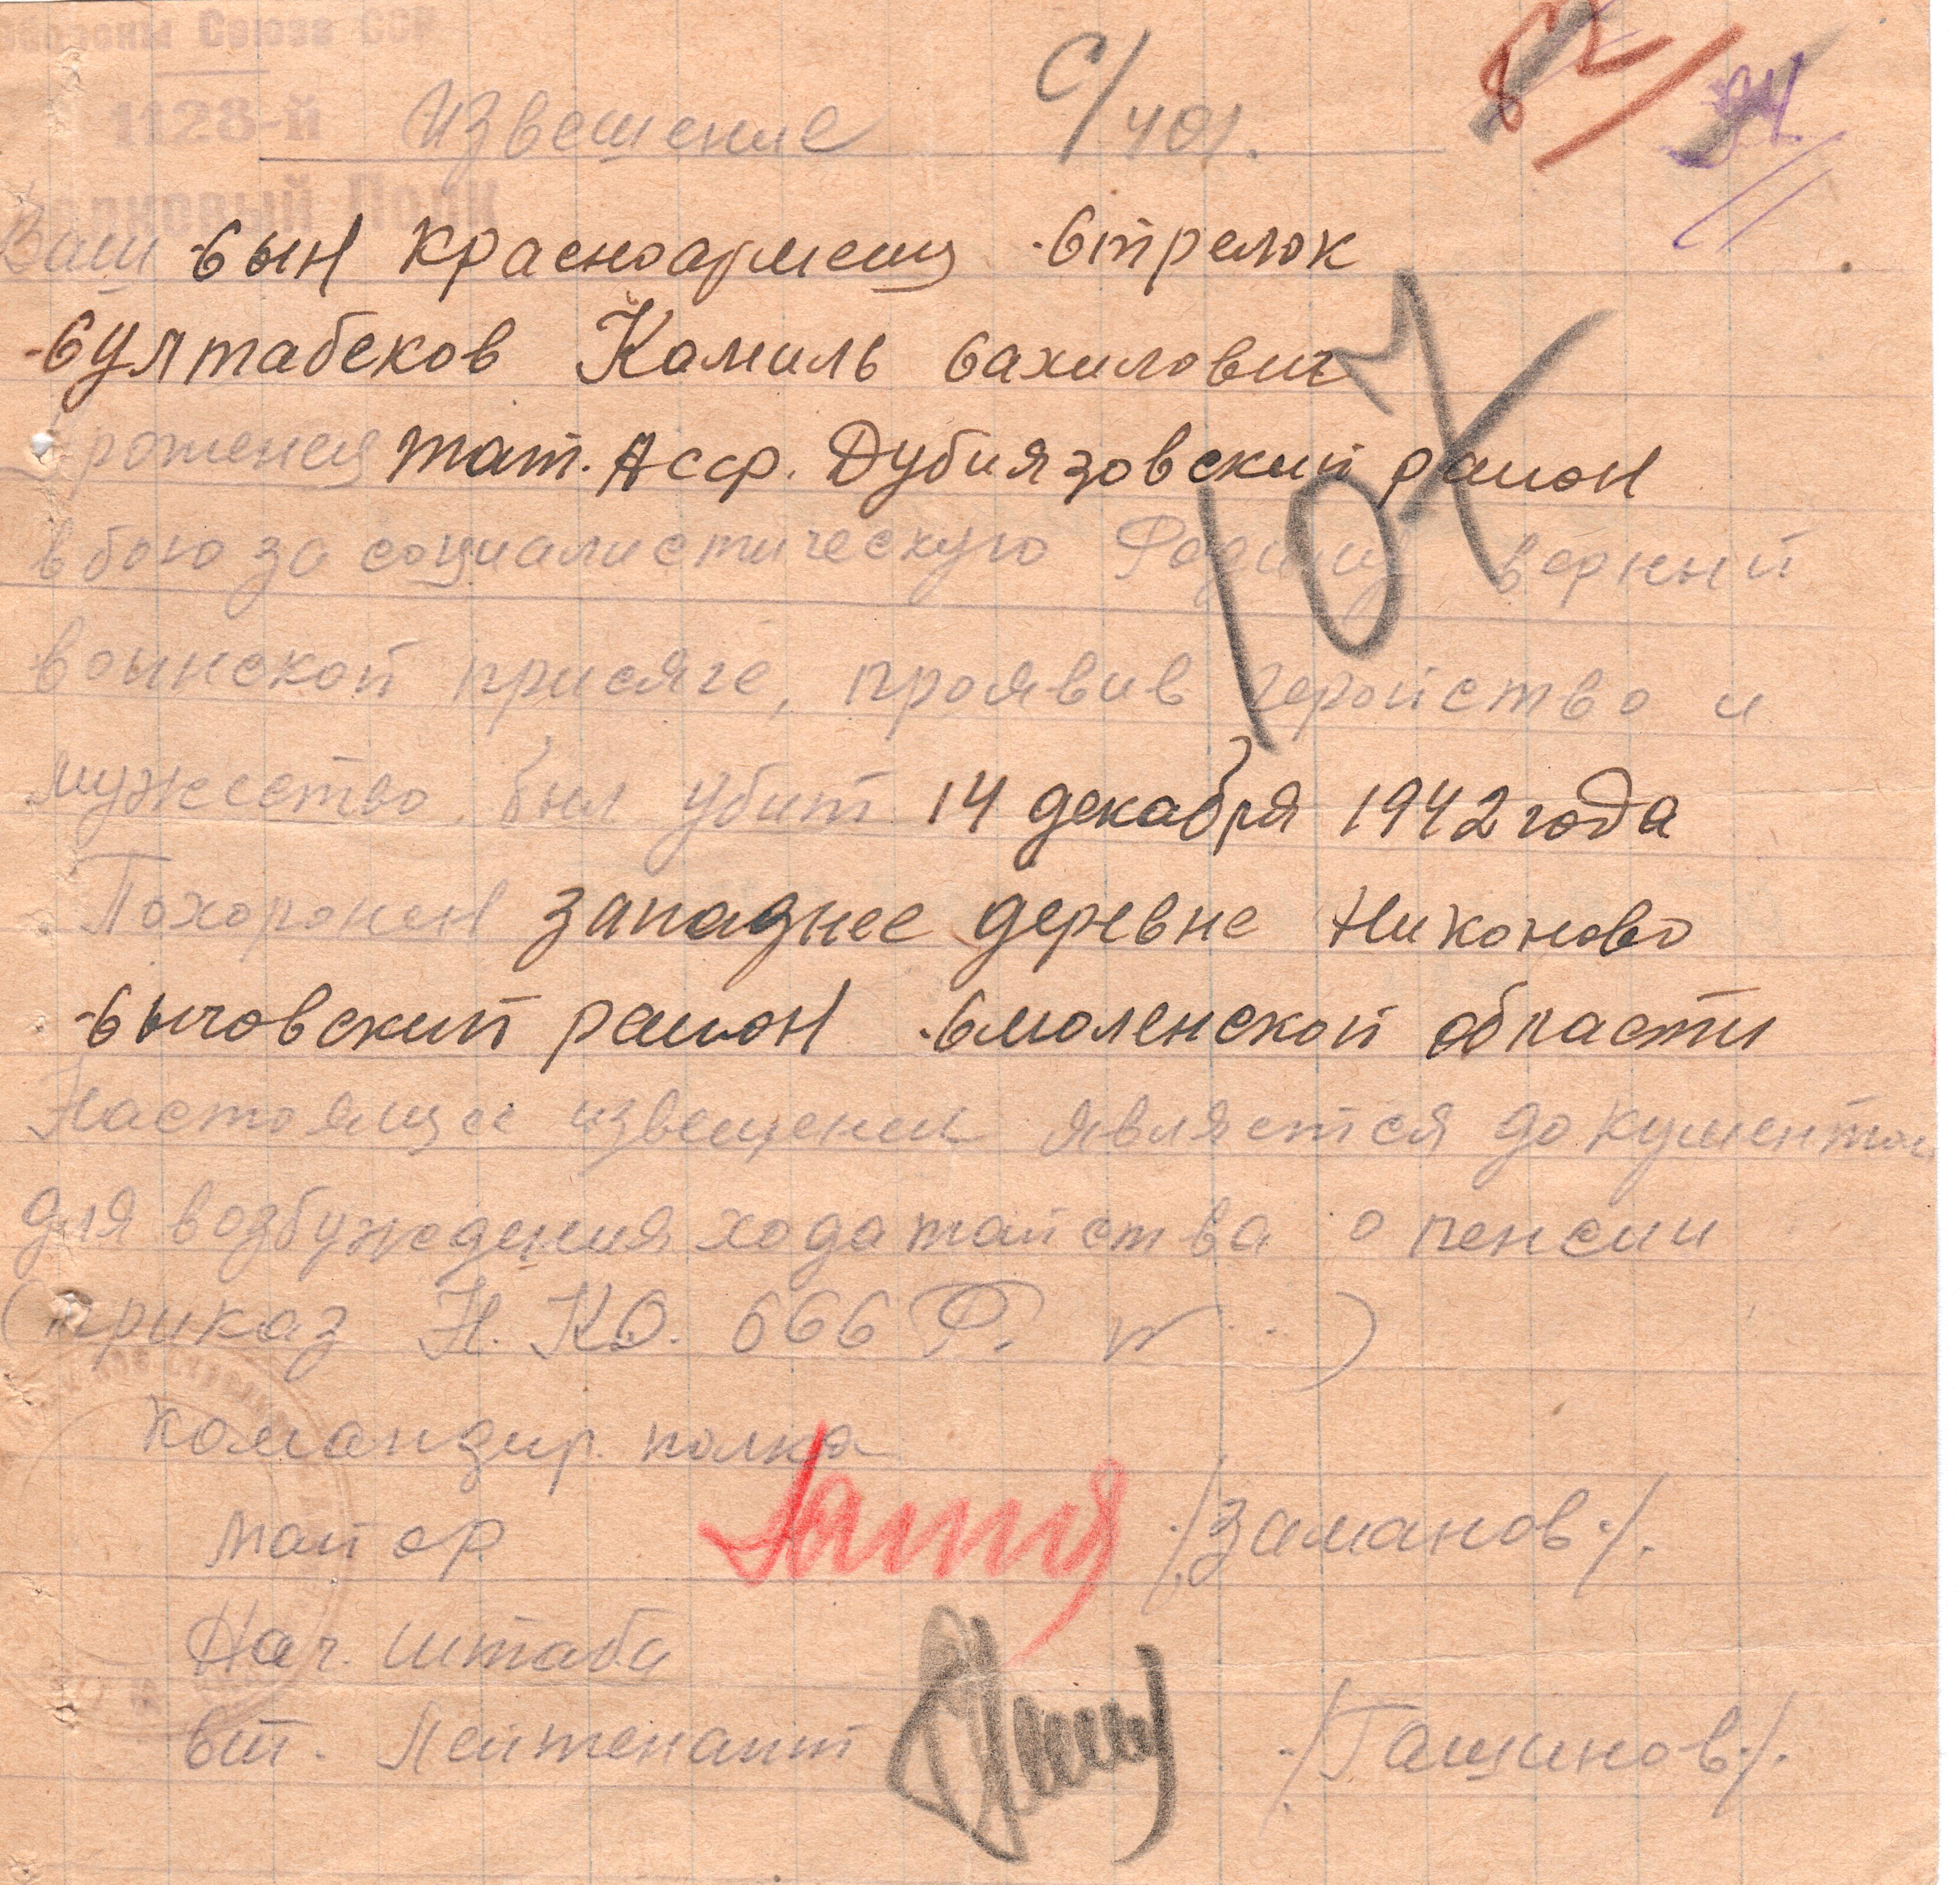 обороны Союза ССР
1128-й
Полк
Извешение С/401.
Ваш Сын красноармеец Стрелок
Султабеков Камиль Сахилович
Уроженец Тат. Асср. Дубиязовский район
в бою за социалистическую Родину, верный
воинской присяге, проявив геройство и
мужество, был убит 14 декабря 1942 года
Похоронен западнее деревне Никоново
Сычовский район Смоленской области
Настоящее извещение является документом
для возбуждения ходатайства о пенсии
(приказ Н.К.О. 666 Р. )
107
командир полка
майор /Заманов/.
Нач. штаба
Ст. Лейтенант /Гащинов/.